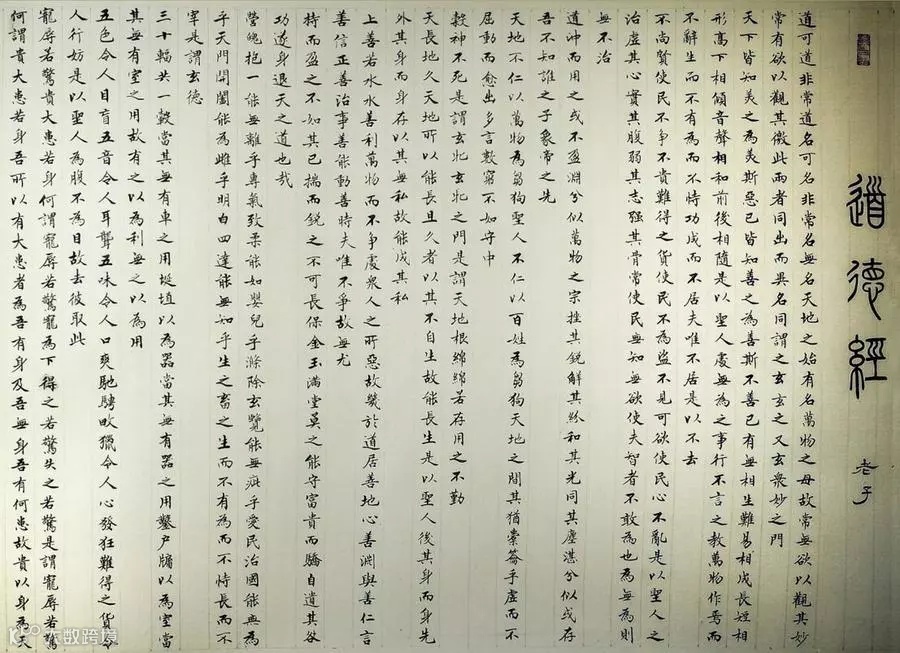 道德經
老子
道可道非常道名可名非常名無名天地之始有名萬物之母故常無欲以觀其妙
常有欲以觀其徼此兩者同出而異名同謂之玄玄之又玄眾妙之門
天下皆知美之為美斯惡已皆知善之為善斯不善已有無相生難易相成長短相
形高下相傾音聲相和前後相隨是以聖人處無為之事行不言之教萬物作焉而
不辭生而不有為而不恃功成而不居夫唯不居是以不去
不尚賢使民不爭不貴難得之貨使民不為盜不見可欲使民心不亂是以聖人之
治虛其心實其腹弱其志强其骨常使民無知無欲使夫智者不敢為也為無為則
無不治
道沖而用之或不盈淵兮似萬物之宗挫其銳解其紛和其光同其塵湛兮似或存
吾不知誰之子象帝之先
天地不仁以萬物為芻狗聖人不仁以百姓為芻狗天地之間其猶橐籥乎虛而不
屈動而愈出多言數窮不如守中
穀神不死是謂玄牝玄牝之門是謂天地根綿綿若存用之不勤
天長地久天地所以能長且久者以其不自生故能長生是以聖人後其身而身先
外其身而身存以其無私故能成其私
上善若水水善利萬物而不爭處眾人之所惡故幾於道居善地心善淵與善仁言
善信正善治事善能動善時夫唯不爭故無尤
持而盈之不如其已揣而銳之不可長保金玉滿堂莫之能守富貴而驕自遺其咎
功遂身退天之道也哉
營魄抱一能無離乎專氣致柔能如嬰兒乎滌除玄覽能無疵乎愛民治國能無為
乎天門開闔能為雌乎明白四達能無知乎生之畜之生而不有為而不恃長而不
宰是謂玄德
三十輻共一轂當其無有車之用埏埴以為器當其無有器之用鑿戶牖以為室當
其無有室之用故有之以為利無之以為用
五色令人目盲五音令人耳聾五味令人口爽馳騁畋獵令人心發狂難得之貨令
人行妨是以聖人為腹不為目故去彼取此
寵辱若驚貴大患若身何謂寵辱若驚寵為下得之若驚失之若驚是謂寵辱若驚
何謂貴大患若身吾所以有大患者為吾有身及吾無身吾有何患故貴以身為天
大数跨境